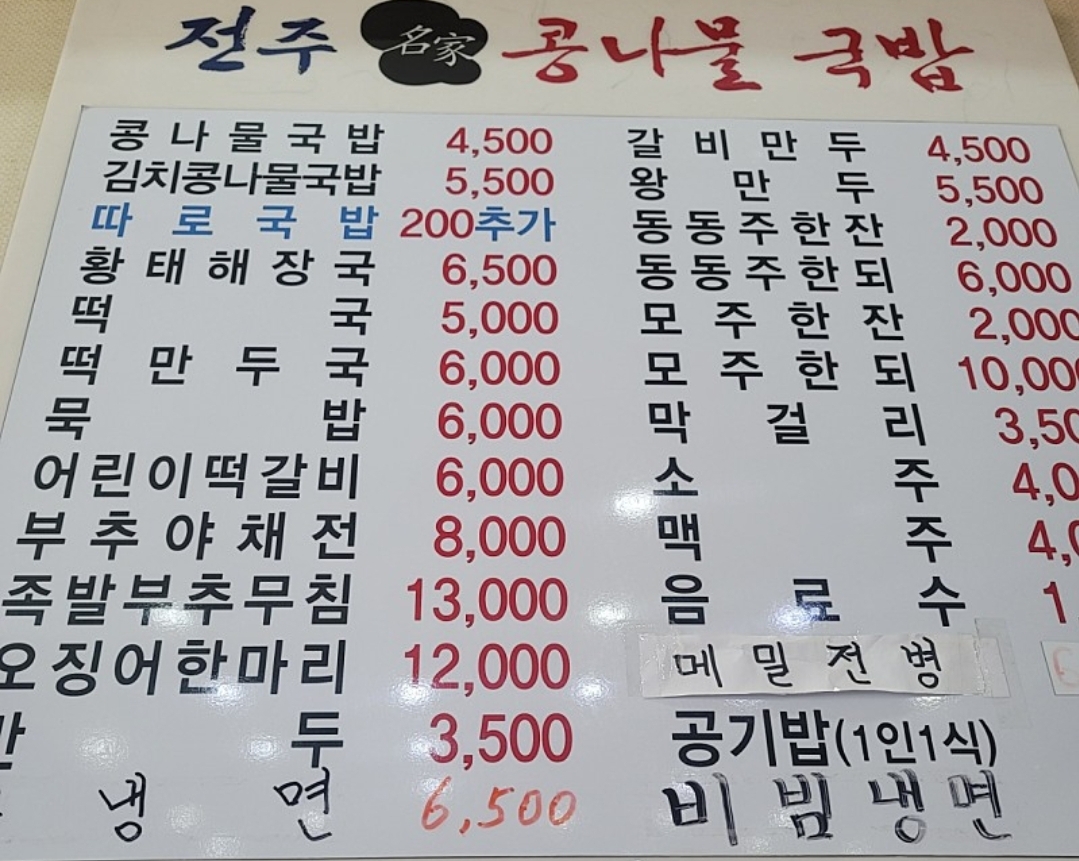 전주 名家 콩나물 국밥
콩나물국밥 4,500
김치콩나물국밥 5,500
따로국밥 200추가
황태해장국 6,500
떡국 5,000
떡만두국 6,000
묵밥 6,000
어린이떡갈비 6,000
부추야채전 8,000
족발부추무침 13,000
오징어한마리 12,000
만두 3,500
냉면 6,500
갈비만두 4,500
왕만두 5,500
동동주한잔 2,000
동동주한되 6,000
모주한잔 2,000
모주한되 10,000
막걸리 3,50
소주 4,0
맥주 4,
음료수 1
메밀전병
공기밥(1인1식)
비빔냉면